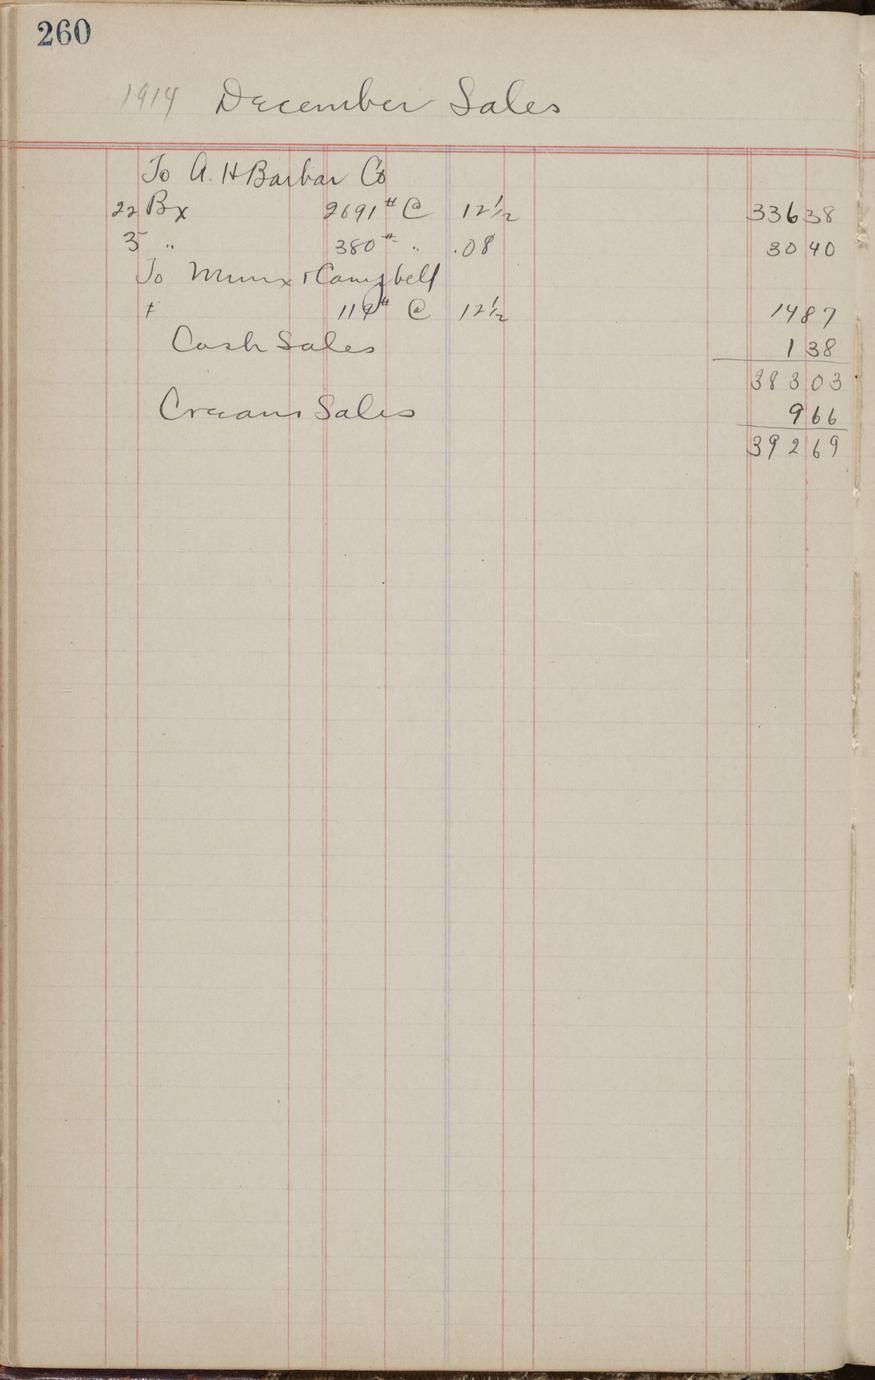 260
1914 December Sales
To A. H Barbar Co
22 Bx 2691 # @ 12 1/2 336 38
3 " 380 # " .08 30 40
To Munx & Campbell
119 # @ 12 1/2 14 87
Cash Sales 1 38
383 03
Cream Sales 9 66
392 69